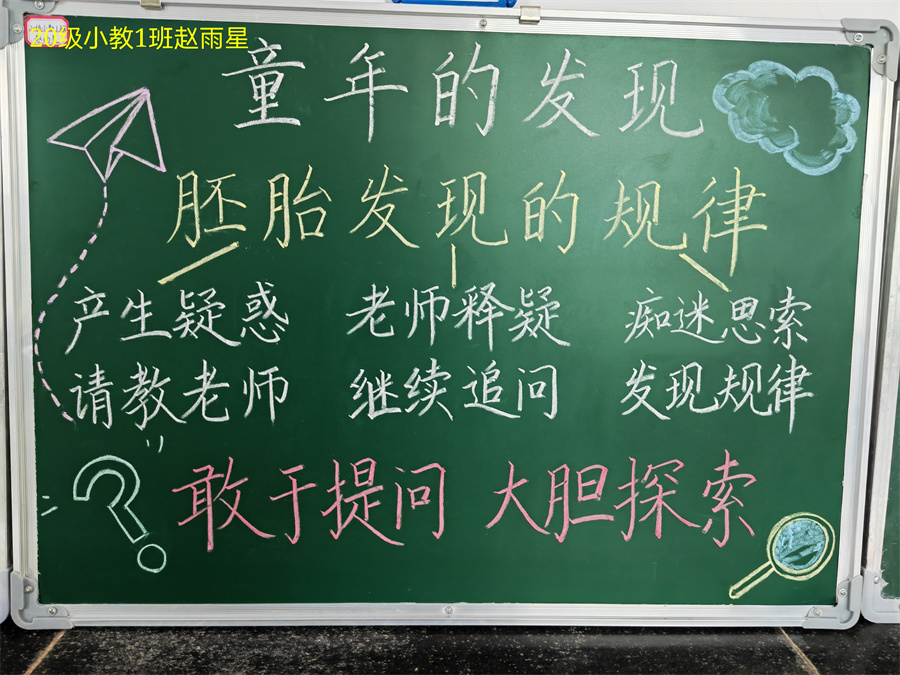 20级小教1班赵雨星
童年的发现
胚胎发现的规律
产生疑惑 老师释疑 痴迷思索
请教老师 继续追问 发现规律
敢于提问 大胆探索